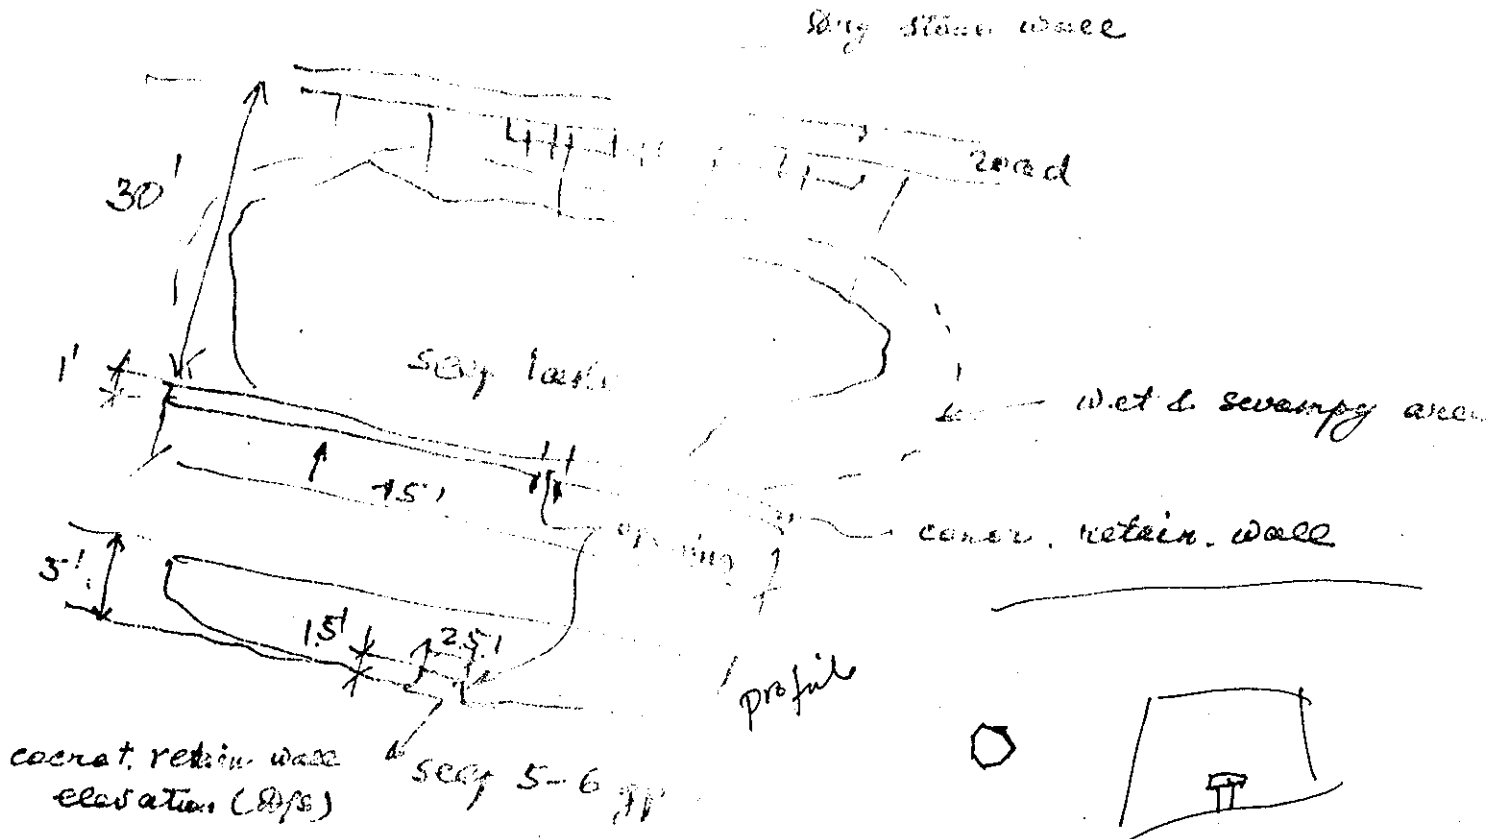 Dry stone wall
road
30'
1'
seep
wet & swampy area
75'
opening
concr. retain. wall
3'
1.5'
2.5'
profile
seep 5-6
concrt. retain. wall
elevation (D/S)